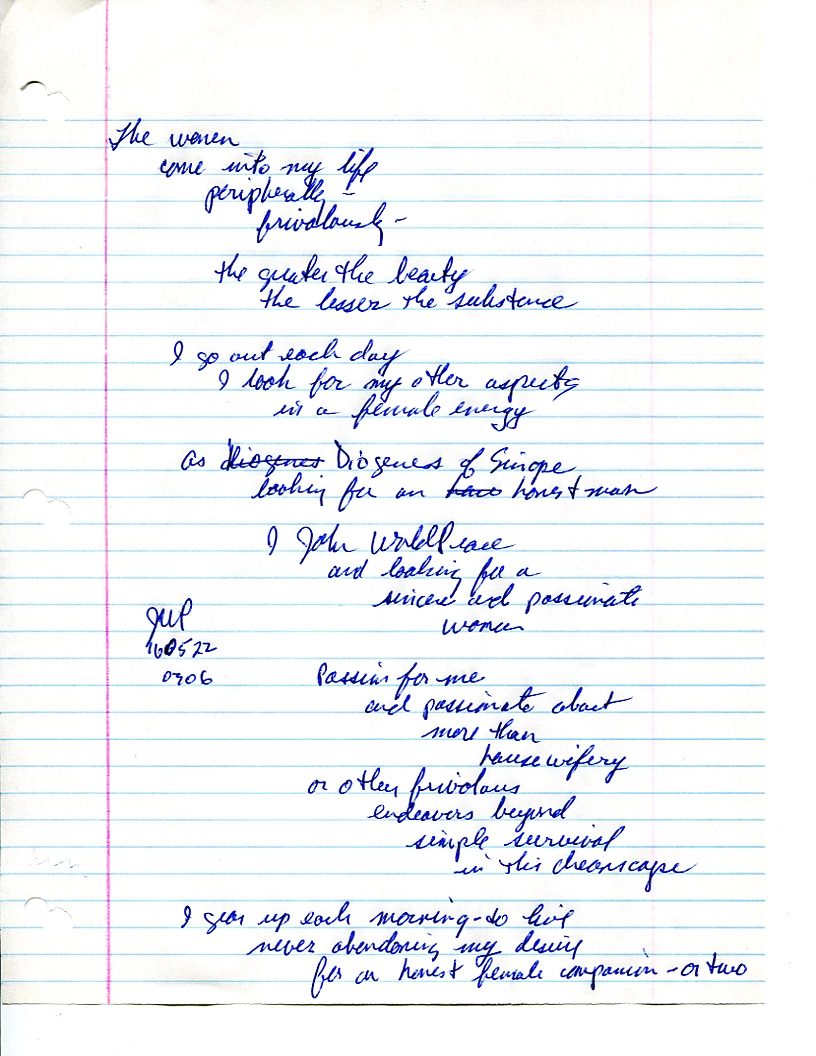 The women
come into my life
peripherally –
frivolously –
the greater the beauty
the lesser the substance
I go out each day
I look for my other aspects
in a female energy
as diogenes Diogenes of Sinope
looking for an honest man
I John WorldPeace
and looking for a
sincere and passionate
woman
JWP
160522
0306
Passion for me
and passionate about
more than
housewifery
or other frivolous
endeavors beyond
simple survival
in this dreamscape
I gear up each morning - to live
never abandoning my desire
for an honest female companion - or two